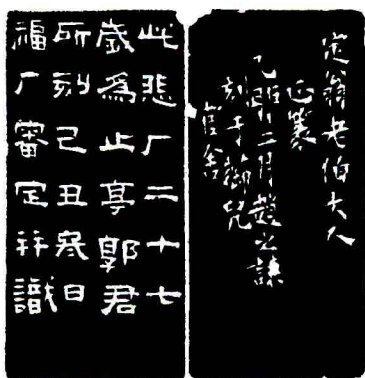 定翁老伯大人
正篆
乙卯十二月趙之謙
刻于御兒
官舍
此悲厂二十七
歲為止亭郭君
所刻己丑寒日
福厂審定并識